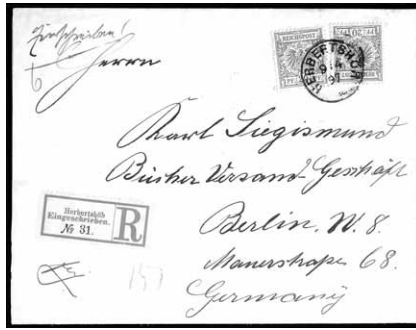 Einschreiben!
Herrn
REICHSPOST
HERBERTSHÖH
9 4
97
Karl Siegismund
Bücher Versand-Geschäft
Berlin. W. 8.
Mauerstraße 68.
Germany
Herbertshöh
Eingeschrieben.
№ 31.
R